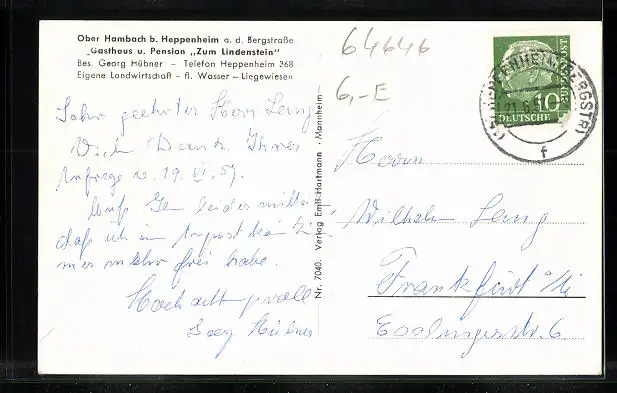 Ober Hambach b. Heppenheim a. d. Bergstraße
Gasthaus u. Pension „Zum Lindenstein“
Bes. Georg Hübner - Telefon Heppenheim 368
Eigene Landwirtschaft - fl. Wasser - Liegewiesen
Sehr geehrter Herr Leng
Viele Dank Ihrer
Anfrage v. 19. VI. 57.
Muß leider mitteilen
daß ich im August kein Zi-
mer mehr frei habe.
Hochachtungsvoll
Georg Hübner
Nr. 7040. Verlag Emil Hartmann - Mannheim
64646
6,-E
10
DEUTSCHE
BUNDESPOST
HEPPENHEIM (BERGSTR)
f
Herrn
Wilhelm Leng
Frankfurt a/M
Esslingerstr. 6